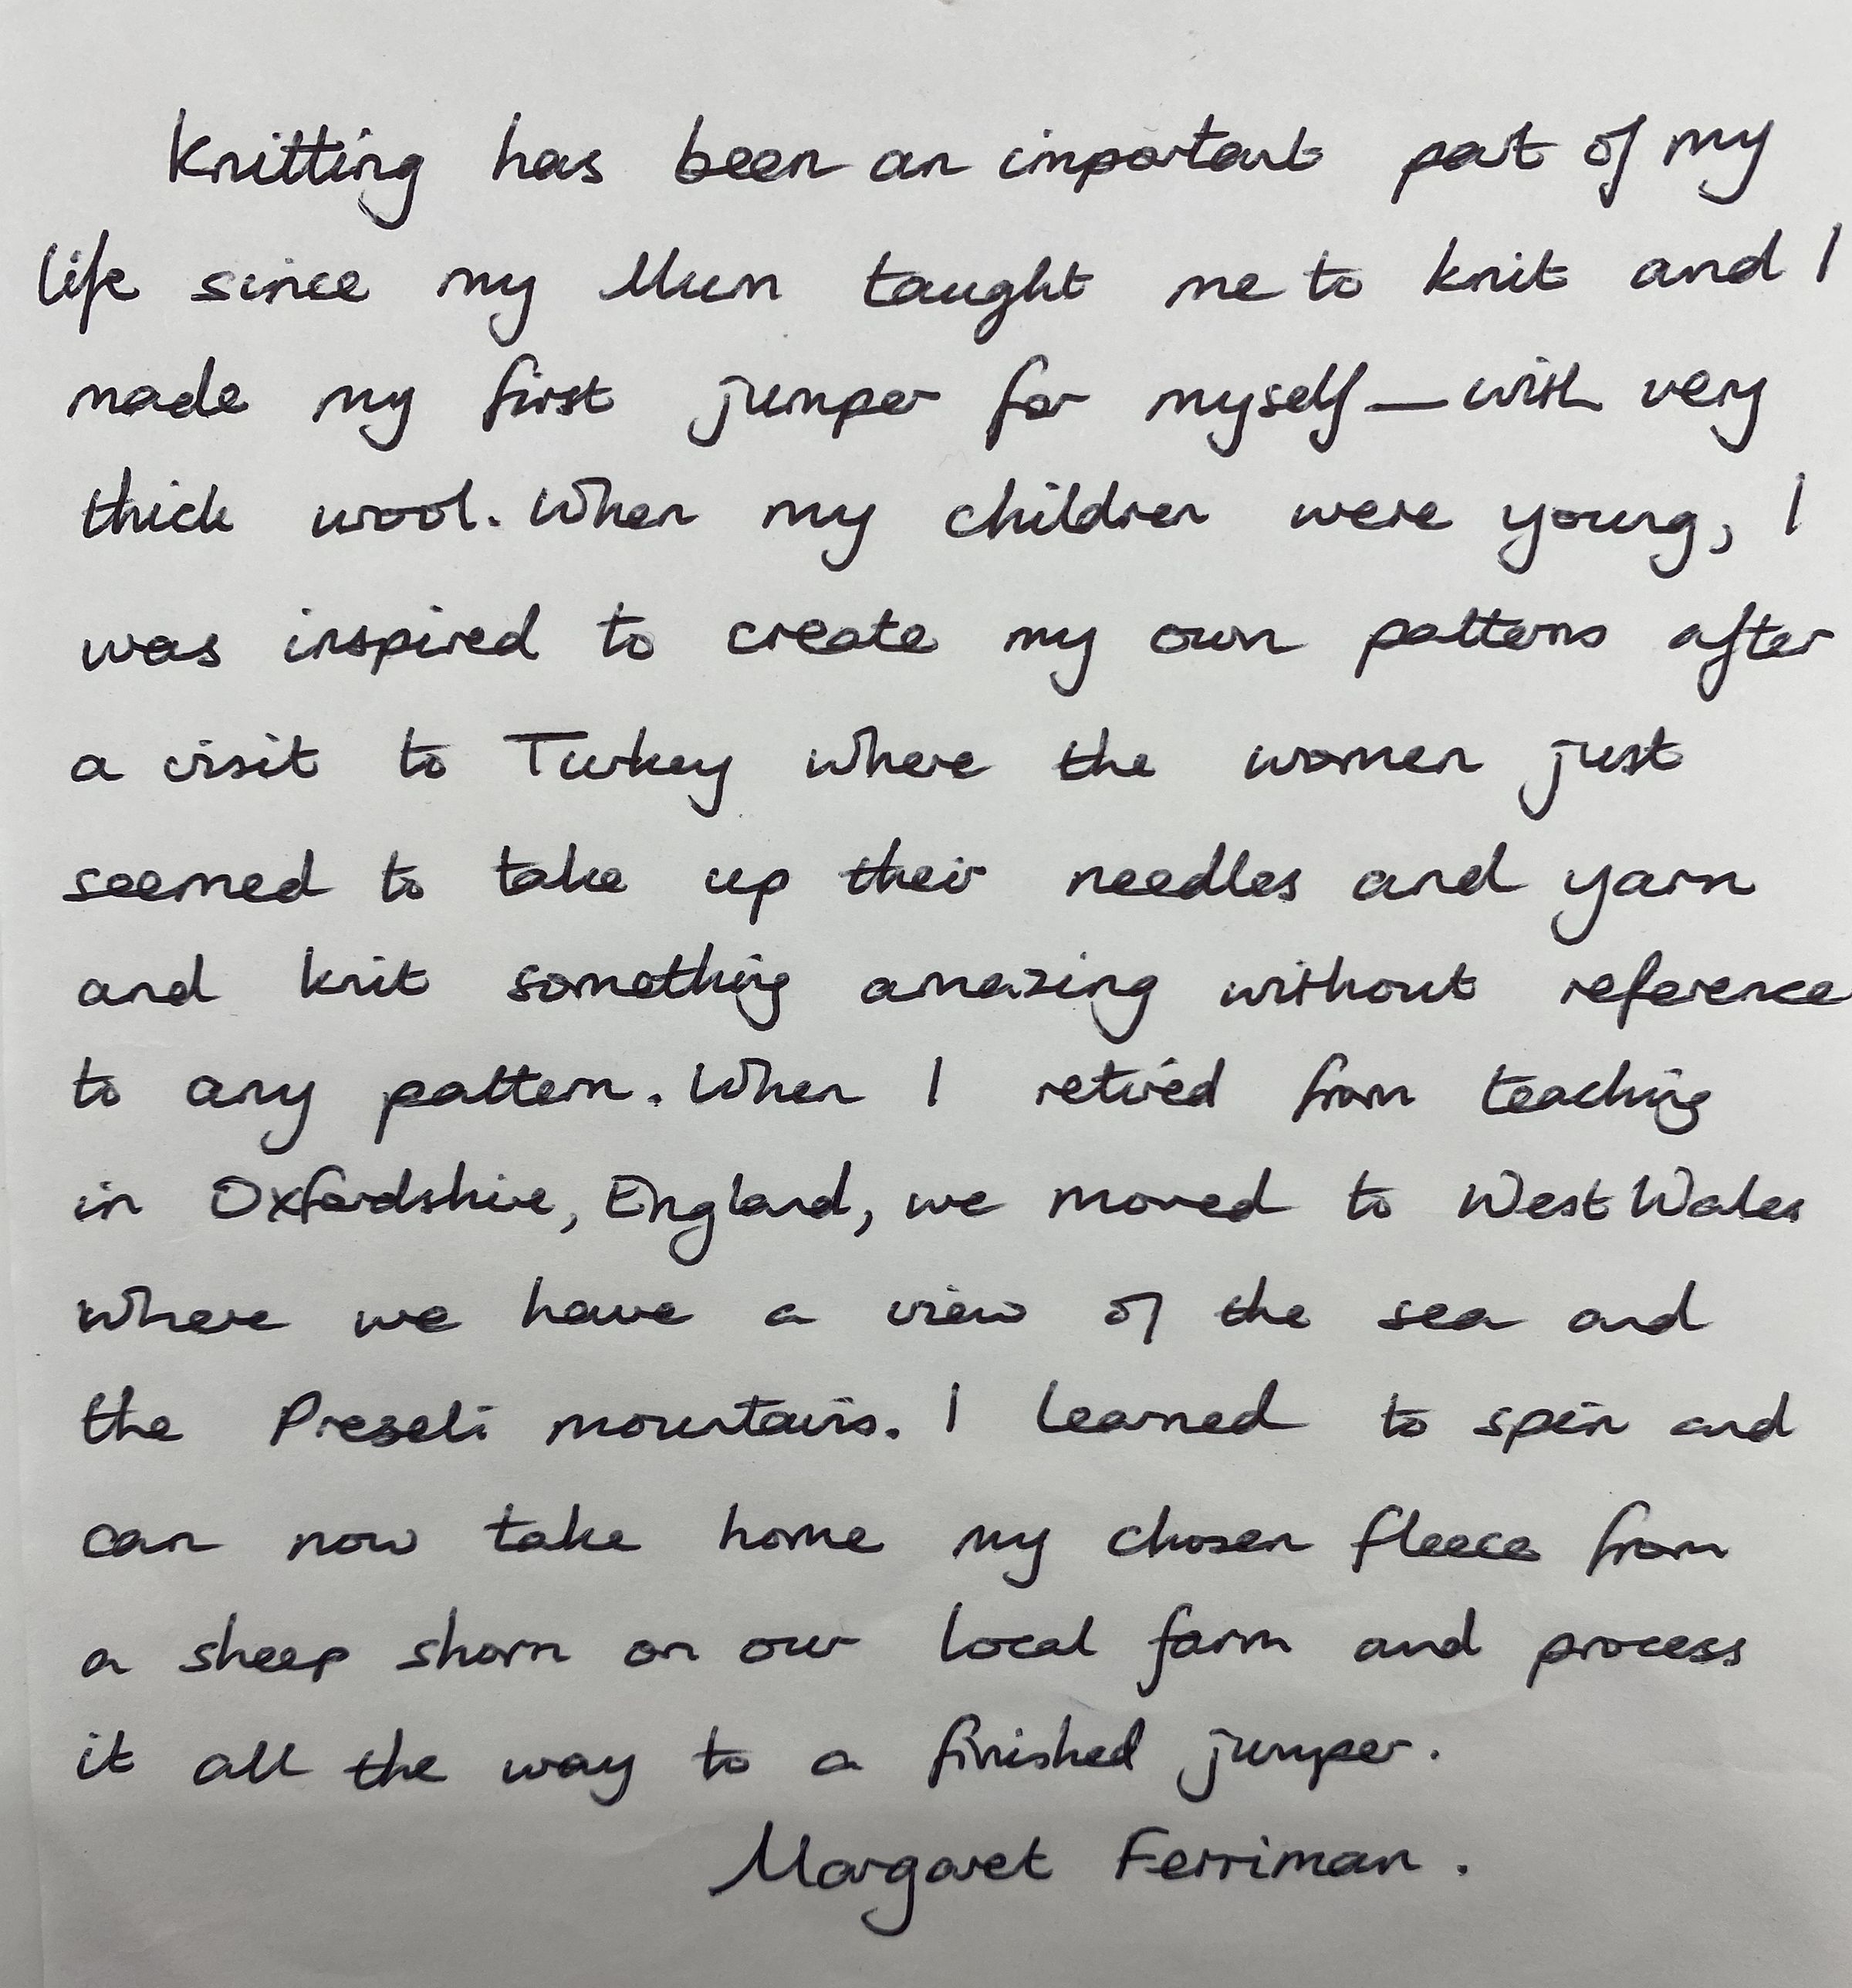 Knitting has been an important part of my
life since my Mum taught me to knit and I
made my first jumper for myself — with very
thick wool. When my children were young, I
was inspired to create my own patterns after
a visit to Turkey where the women just
seemed to take up their needles and yarn
and knit something amazing without reference
to any pattern. When I retired from teaching
in Oxfordshire, England, we moved to West Wales
where we have a view of the sea and
the Preseli mountains. I learned to spin and
can now take home my chosen fleece from
a sheep shorn on our local farm and process
it all the way to a finished jumper.
Margaret Ferriman.